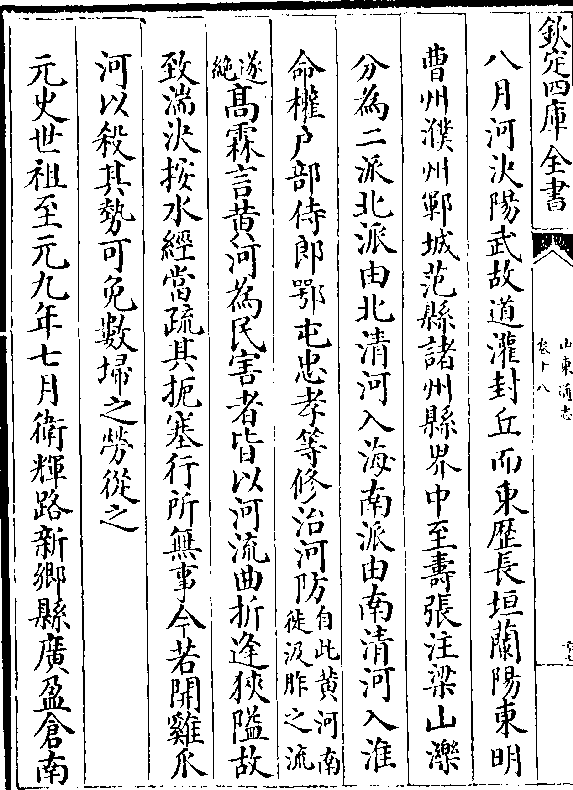 欽定四庫全書
山東通志
卷十八
八月河決陽武故道灌封丘而東歷長垣蘭陽東明
曹州濮州鄆城范縣諸州縣界中至壽張注梁山濼
分為二派北派由北清河入海南派由南清河入淮
命權户部侍郎鄂屯忠孝等修治河防自此黄河南
徙汲胙之流
遂絶高霖言黄河為民害者皆以河流曲折逢狹隘故
致湍決按水經當疏其扼塞行所無事今若開雞爪
河以殺其勢可免數埽之勞從之
元史世祖至元九年七月衛輝路新鄉縣廣盈倉南